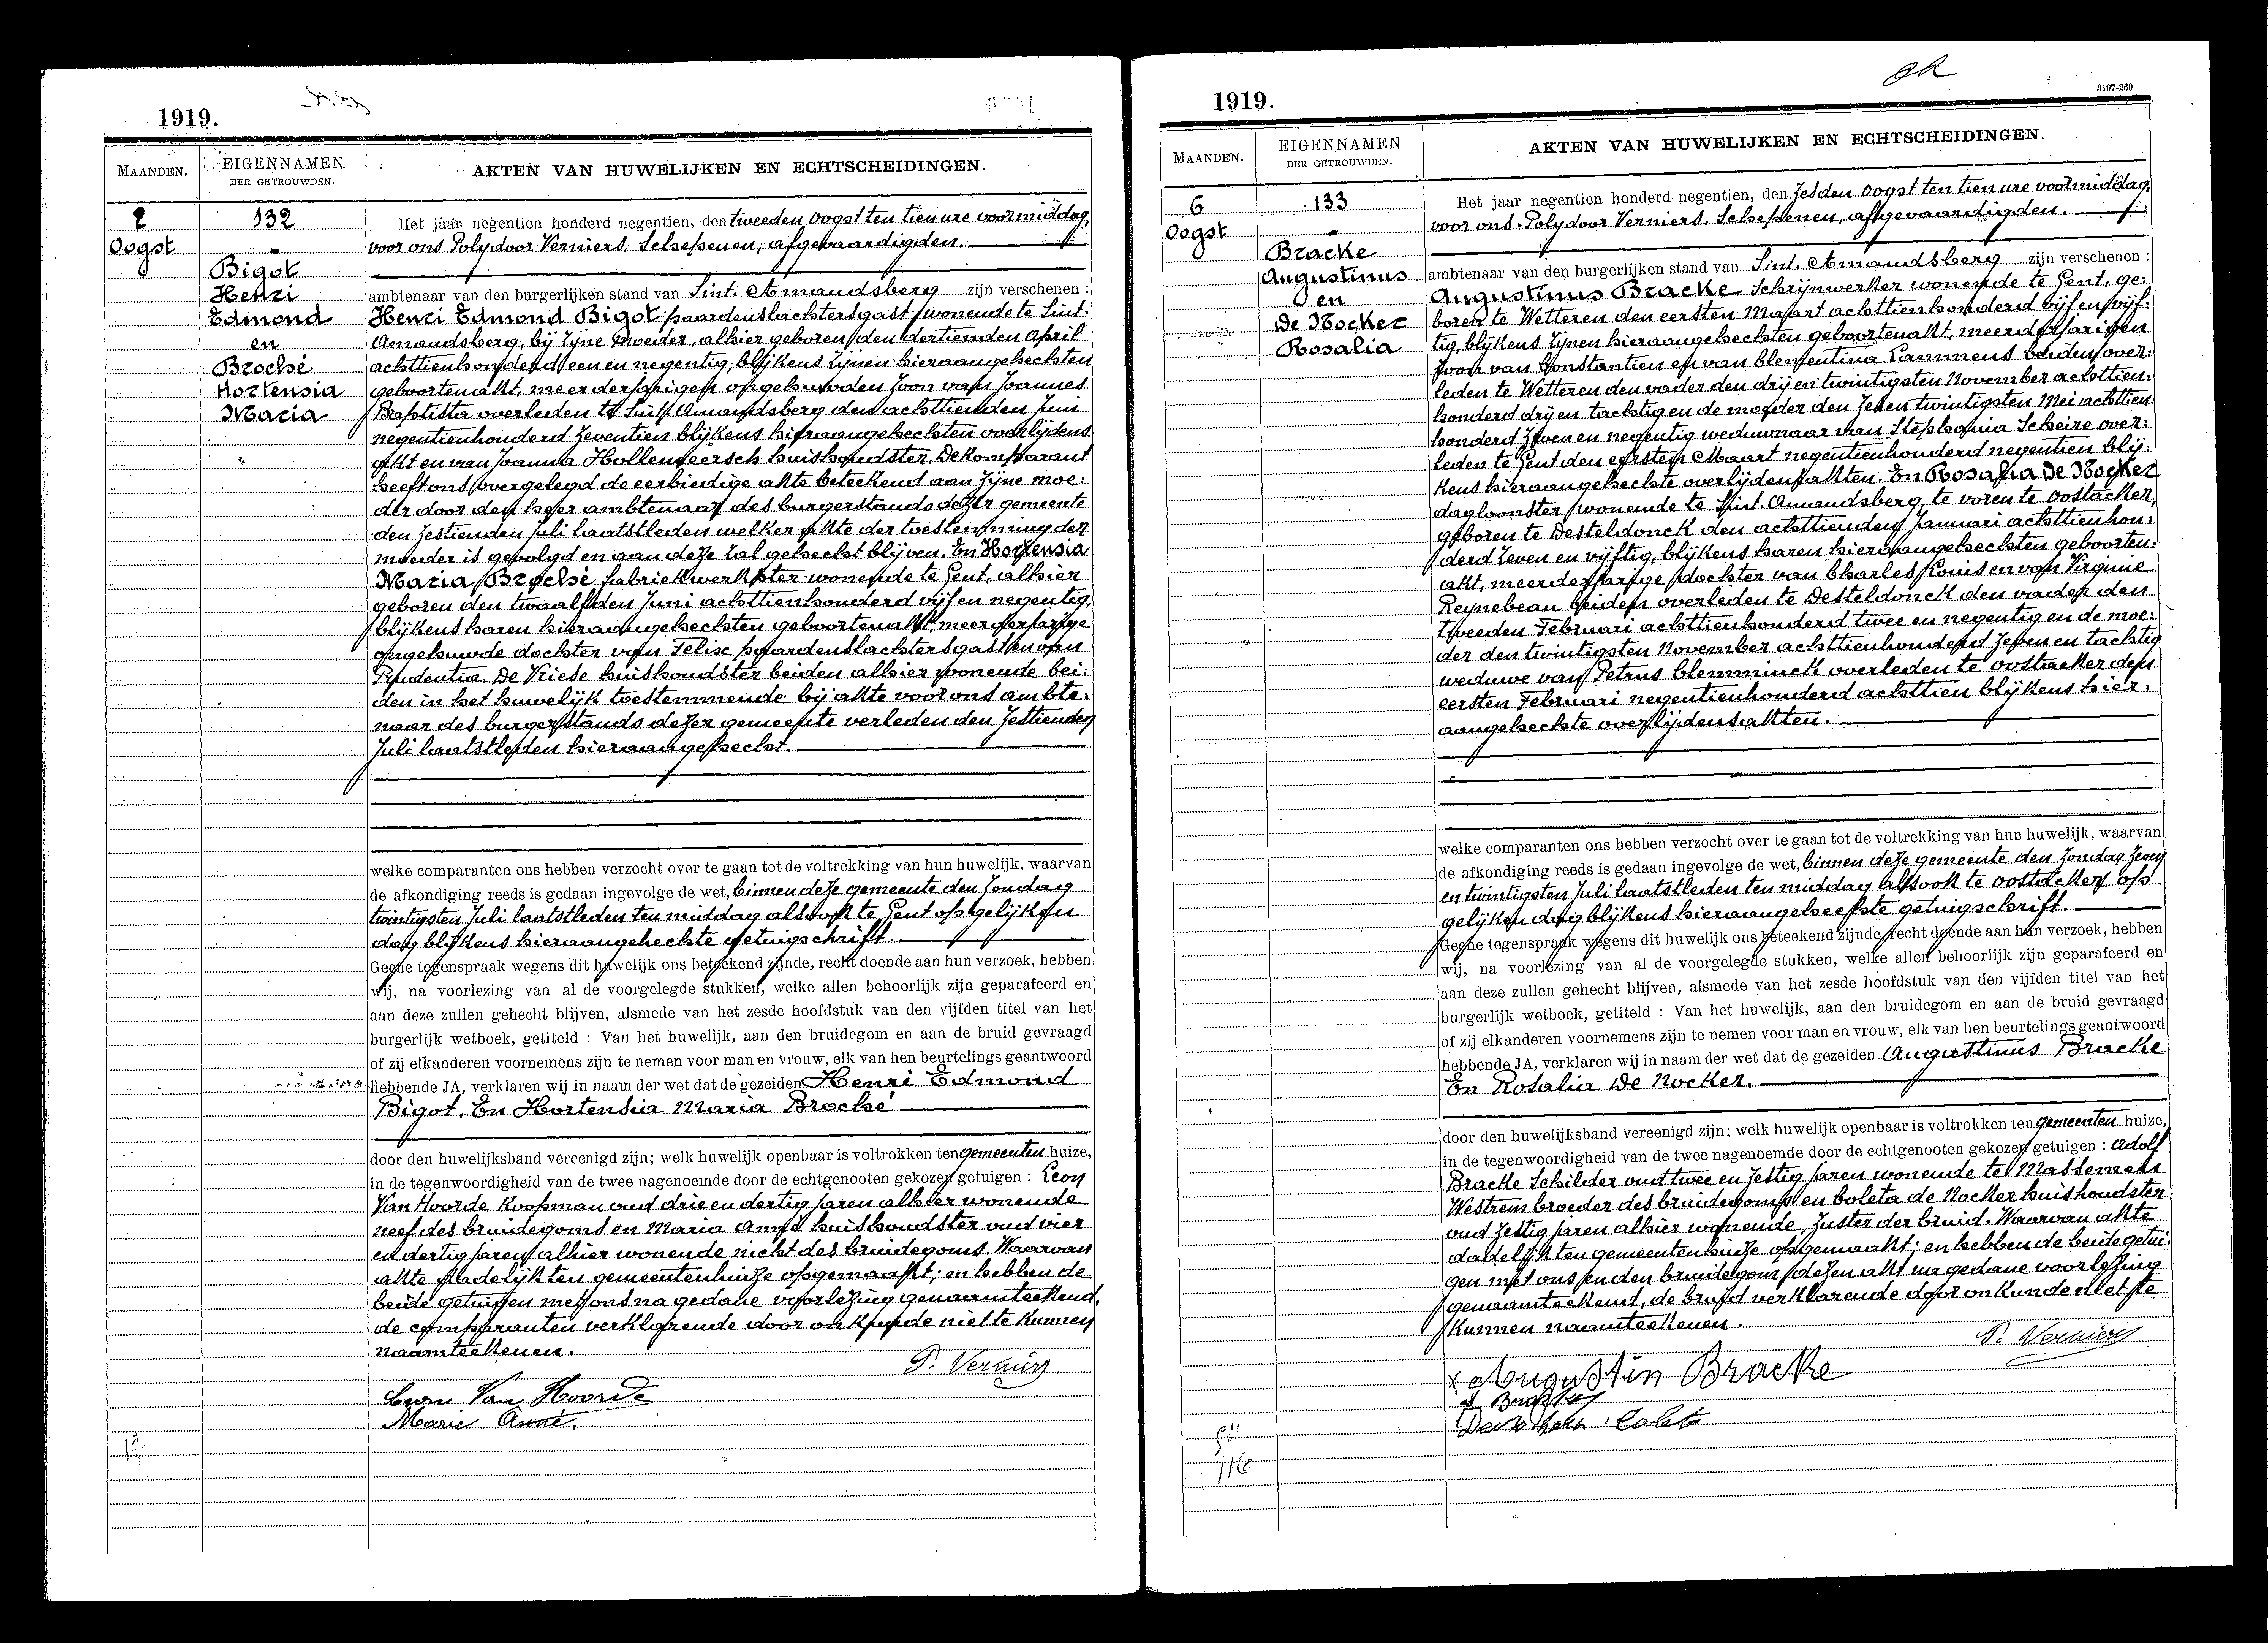 1919.
MAANDEN.
EIGENNAMEN
DER GETROUWDEN.
AKTEN VAN HUWELIJKEN EN ECHTSCHEIDINGEN.
2
Oogst
132
Bigot
Henri
Edmond
en
Broché
Hortensia
Maria
Het jaar negentien honderd negentien, den tweeden Oogst ten tien ure voormiddag,
voor ons Polydoor Verniers, Schepenen, afgevaardigden.
ambtenaar van den burgerlijken stand van Sint. Amandsberg zijn verschenen :
Henri Edmond Bigot paardenslachtersgast wonende te Sint.
Amandsberg, bij zijne moeder, alhier geboren den dertienden April
achttienhonderd een en negentig, blijkens zijnen hieraangehechten
geboortenakt, meerderjarigen ongehuwden zoon van Joannes
Baptista overleden te Sint Amandsberg den achttienden Juni
negentienhonderd zeventien blijkens hieraangehechten overlijdens
akt en van Joanna Hollemeersch huishoudster. De komparant
heeft ons overgelegd de eerbiedige akte beteekend aan zijne moe:
der door den heer ambtenaar des burgerstands dezer gemeente
den zestienden Juli laatstleden welker akte der toestemming der
moeder is gevolgd en aan deze zal gehecht blijven. En Hortensia
Maria Broché, fabriekwerkster wonende te Gent, alhier
geboren den twaalfden Juni achttienhonderd vijf en negentig,
blijkens haren hieraangehechten geboortenakt, meerderjarige
ongehuwde dochter van Felix paardenslachtersgast en van
Prudentia De Vriese huishoudster beiden alhier wonende bei:
den in het huwelijk toestemmende bij akte voor ons ambte:
naar des burgerstands dezer gemeente verleden den zestienden
Juli laatstleden hieraangehecht.
welke comparanten ons hebben verzocht over te gaan tot de voltrekking van hun huwelijk, waarvan
de afkondiging reeds is gedaan ingevolge de wet, binnen deze gemeente den Zondag
twintigsten Juli laatstleden ten middag alsook te Gent op gelijken
dag blijkens hieraangehechte getuigschrift.
Geene tegenspraak wegens dit huwelijk ons beteekend zijnde, recht doende aan hun verzoek, hebben
wij, na voorlezing van al de voorgelegde stukken, welke allen behoorlijk zijn geparafeerd en
aan deze zullen gehecht blijven, alsmede van het zesde hoofdstuk van den vijfden titel van het
burgerlijk wetboek, getiteld : Van het huwelijk, aan den bruidegom en aan de bruid gevraagd
of zij elkanderen voornemens zijn te nemen voor man en vrouw, elk van hen beurtelings geantwoord
hebbende JA, verklaren wij in naam der wet dat de gezeiden Henri Edmond
Bigot. En Hortensia Maria Broché
door den huwelijksband vereenigd zijn; welk huwelijk openbaar is voltrokken ten gemeenten huize,
in de tegenwoordigheid van de twee nagenoemde door de echtgenooten gekozen getuigen : Leon
Van Hoorde Koopman oud drie en dertig jaren alhier wonende
neef des bruidegoms en Maria Anné huishoudster oud vier
en dertig jaren alhier wonende nicht des bruidegoms. Waarvan
akte dadelijk ten gemeentenhuize opgemaakt; en hebben de
beide getuigen met ons na gedane voorlezing genaamteekend,
de comparanten verklarende door onkunde niet te kunnen
naamteekenen.
P. Verniers
Leon Van Hoorde
Marie Anné.
1919.
3197-269
MAANDEN.
EIGENNAMEN
DER GETROUWDEN.
AKTEN VAN HUWELIJKEN EN ECHTSCHEIDINGEN.
6
Oogst
133
Bracke
Augustinus
en
De Nocker
Rosalia
Het jaar negentien honderd negentien, den Zesden Oogst ten tien ure voormiddag,
voor ons Polydoor Verniers, Schepenen, afgevaardigden.
ambtenaar van den burgerlijken stand van Sint. Amandsberg zijn verschenen :
Augustinus Bracke Schrijnwerker wonende te Gent, ge:
boren te Wetteren den eersten Maart achttienhonderd vijf en vijf:
tig, blijkens zijnen hieraangehechten geboortenakt, meerderjarigen
zoon van Constantien en van Clementina Lammens beiden over:
leden te Wetteren den vader den drij en twintigsten November achttien:
honderd drij en tachtig en de moeder den zeven twintigsten Mei achttien
honderd zeven en negentig weduwnaar van Stephania Scheire over:
leden te Gent den eersten Maart negentienhonderd negentien blij:
kens hieraangehechte overlijdensakten. En Rosalia De Nocker
dagloonster wonende te Sint. Amandsberg, te voren te Oostacker,
geboren te Desteldonck den achttienden Januari achttienhon:
derd zeven en vijftig, blijkens haren hieraangehechten geboorten:
akt, meerderjarige dochter van Charles Louis en van Virginie
Reynebeau beiden overleden te Desteldonck den vader den
tweeden Februari achttienhonderd twee en negentig en de moe:
der den twintigsten November achttienhonderd zeven en tachtig
weduwe van Petrus Clemminck overleden te Oostacker den
eersten Februari negentienhonderd achttien blijkens hier:
aangehechte overlijdensakten.
welke comparanten ons hebben verzocht over te gaan tot de voltrekking van hun huwelijk, waarvan
de afkondiging reeds is gedaan ingevolge de wet, binnen deze gemeente den Zondag zeven
en twintigsten Juli laatstleden ten middag alsook te Oostacker op
gelijken dag blijkens hieraangehechte getuigschrift.
Geene tegenspraak wegens dit huwelijk ons beteekend zijnde, recht doende aan hun verzoek, hebben
wij, na voorlezing van al de voorgelegde stukken, welke allen behoorlijk zijn geparafeerd en
aan deze zullen gehecht blijven, alsmede van het zesde hoofdstuk van den vijfden titel van het
burgerlijk wetboek, getiteld : Van het huwelijk, aan den bruidegom en aan de bruid gevraagd
of zij elkanderen voornemens zijn te nemen voor man en vrouw, elk van hen beurtelings geantwoord
hebbende JA, verklaren wij in naam der wet dat de gezeiden Augustinus Bracke
En Rosalia De Nocker.
door den huwelijksband vereenigd zijn; welk huwelijk openbaar is voltrokken ten gemeenten huize,
in de tegenwoordigheid van de twee nagenoemde door de echtgenooten gekozen getuigen : Adolf
Bracke Schilder oud twee en zestig jaren wonende te Massemen
Westrem broeder des bruidegoms en Coleta de Nocker huishoudster
oud zestig jaren alhier wonende, zuster der bruid. Waarvan akte
dadelijk ten gemeentenhuize opgemaakt; en hebben de beide getui:
gen met ons en den bruidegom dezen akt na gedane voorlezing
genaamteekend, de bruid verklarende door onkunde niet te
kunnen naamteekenen.
P. Verniers
x Augustin Bracke